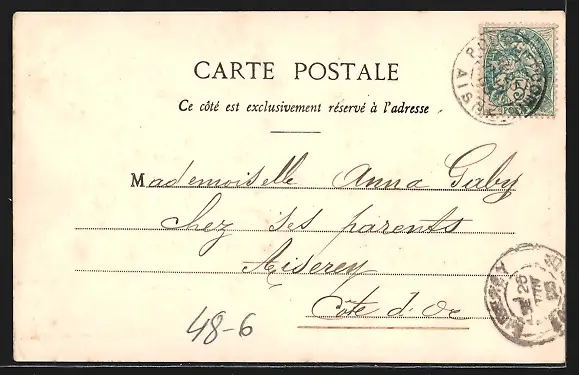 CARTE POSTALE
Ce côté est exclusivement réservé à l'adresse
Mademoiselle Anna Gaby
chez ses parents
Aiserey
Côte d'Or
48-6